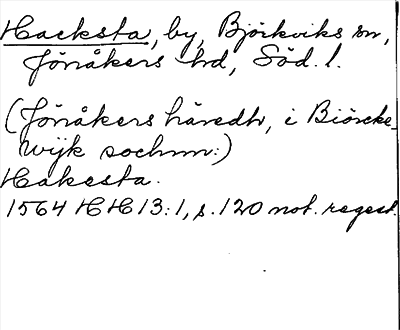 Hacksta, by, Björkviks sn,
Jönåkers hd, Söd. l.
(Jönåkers häredh, i Biörcke_
wijk sochnn:)
Hakesta.
1564 HH 13:1, s. 120 not. regest.